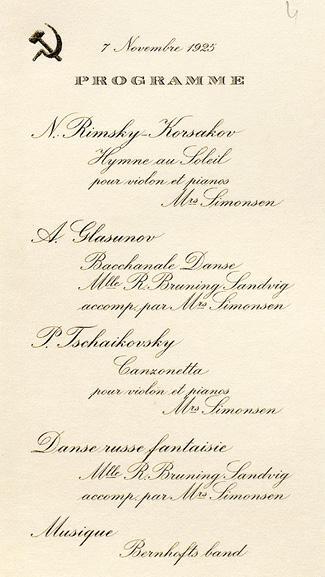 7 Novembre 1925
PROGRAMME
N. Rimsky-Korsakov
Hymne au Soleil
pour violon et pianos
Mrs Simonsen
A. Glasunov
Bacchanale Danse
Mlle R. Bruning Sandvig
accomp. par Mrs Simonsen
P. Tschaikovsky
Canzonetta
pour violon et pianos
Mrs Simonsen
Danse russe fantaisie
Mlle R. Bruning Sandvig
accomp. par Mrs Simonsen
Musique
Bernhofts band